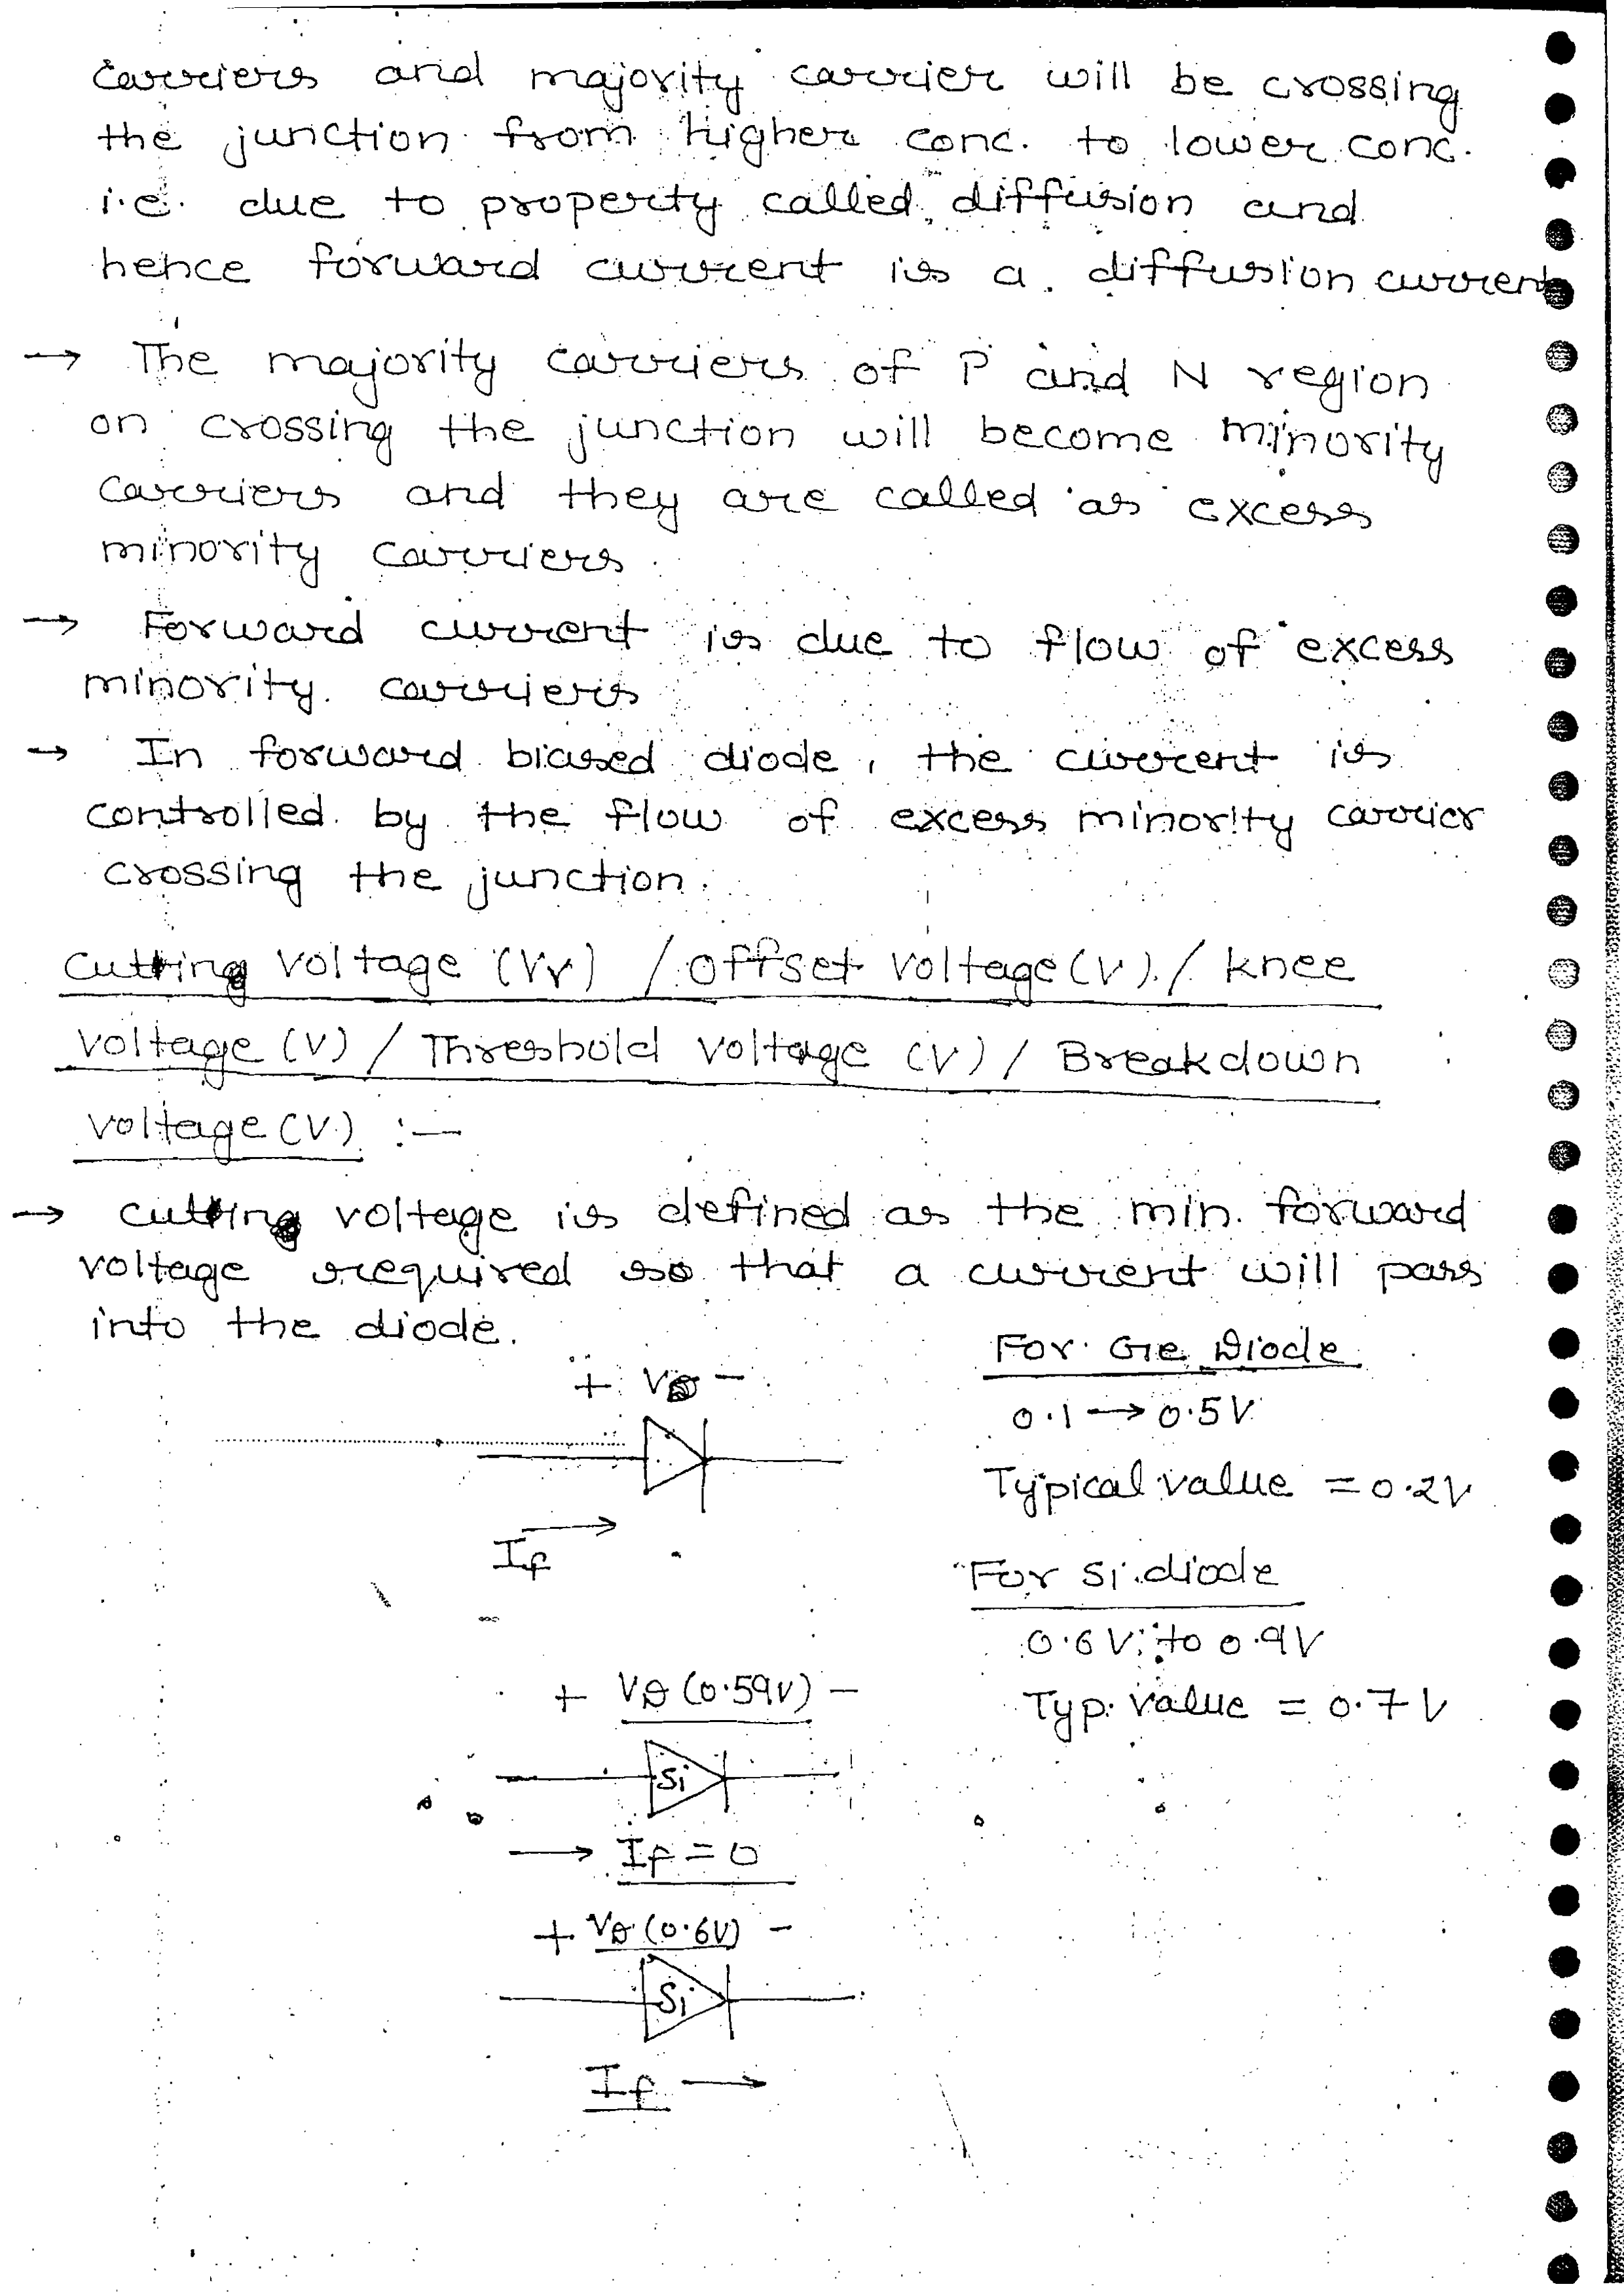 carriers and majority carrier will be crossing
the junction from higher conc. to lower conc.
i.e. due to property called diffusion and
hence forward current is a diffusion current
→ The majority carriers of P and N region
on crossing the junction will become minority
carriers and they are called as excess
minority carriers.
→ Forward current is due to flow of excess
minority carriers
→ In forward biased diode, the current is
controlled by the flow of excess minority carrier
crossing the junction.
Cutting Voltage (Vγ) / Offset Voltage (V) / Knee
Voltage (V) / Threshold Voltage (V) / Breakdown
Voltage (V) :—
→ Cutting voltage is defined as the min. forward
voltage required so that a current will pass
into the diode.
+ VD −
If →
For Ge Diode
0.1 → 0.5V
Typical value = 0.2V
For Si diode
0.6V to 0.9V
Typ. value = 0.7V
+ VD (0.59V) −
Si
→ If = 0
+ VD (0.6V) −
Si
If →